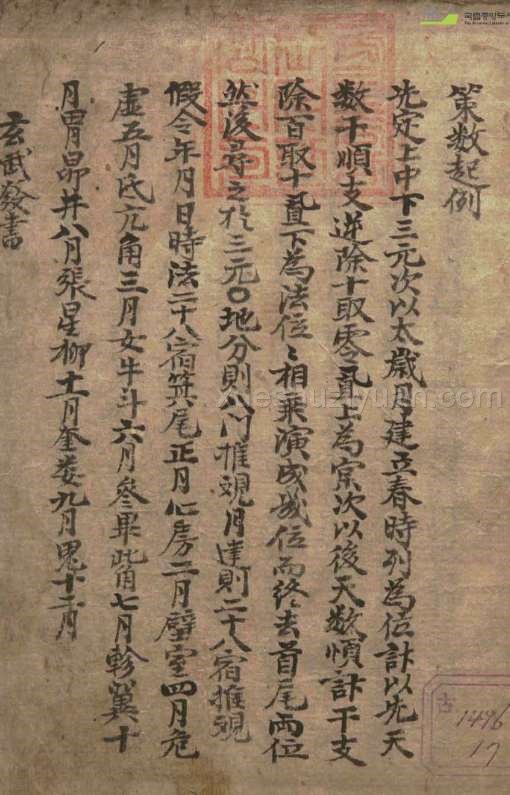 策数起例
先定上中下三元次以太歲月建立春時列為位計以先天
数干順支逆除十取零置上為宗次以後天数順計干支
除百取十置下為法位〻相乘演成我位而終去首尾兩位
然後尋之於三元〇地分則八门推覌月建則二十八宿推覌
假令年月日時法二十八宿箕尾正月心房二月壁室四月危
虛五月氐亢角三月女牛斗六月參畢觜七月軫翼十
月胃昴井八月張星柳十一月奎娄九月鬼十二月
玄武發書
古
1496
17